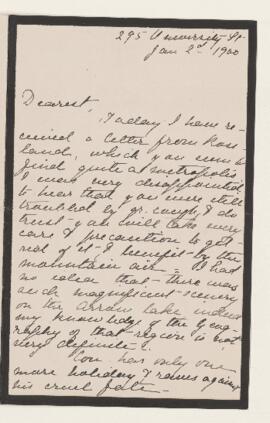 295 University St.
Jan 2nd 1900
Dearest,
Today I have re-
ceived a letter from Ross-
land, which you must
find quite a metropolis
I was very disappointed
to hear that you were still
troubled by yr. cough, I do
trust you will take every
care & precaution to get
rid of it & benefit by the
mountain air - I had
no idea that there was
such magnificent scenery
on the Arrow Lake indeed
my knowledge of the geog-
raphy of that region is not
very definite!
Con. has only one
more holiday & raves against
his cruel fate -